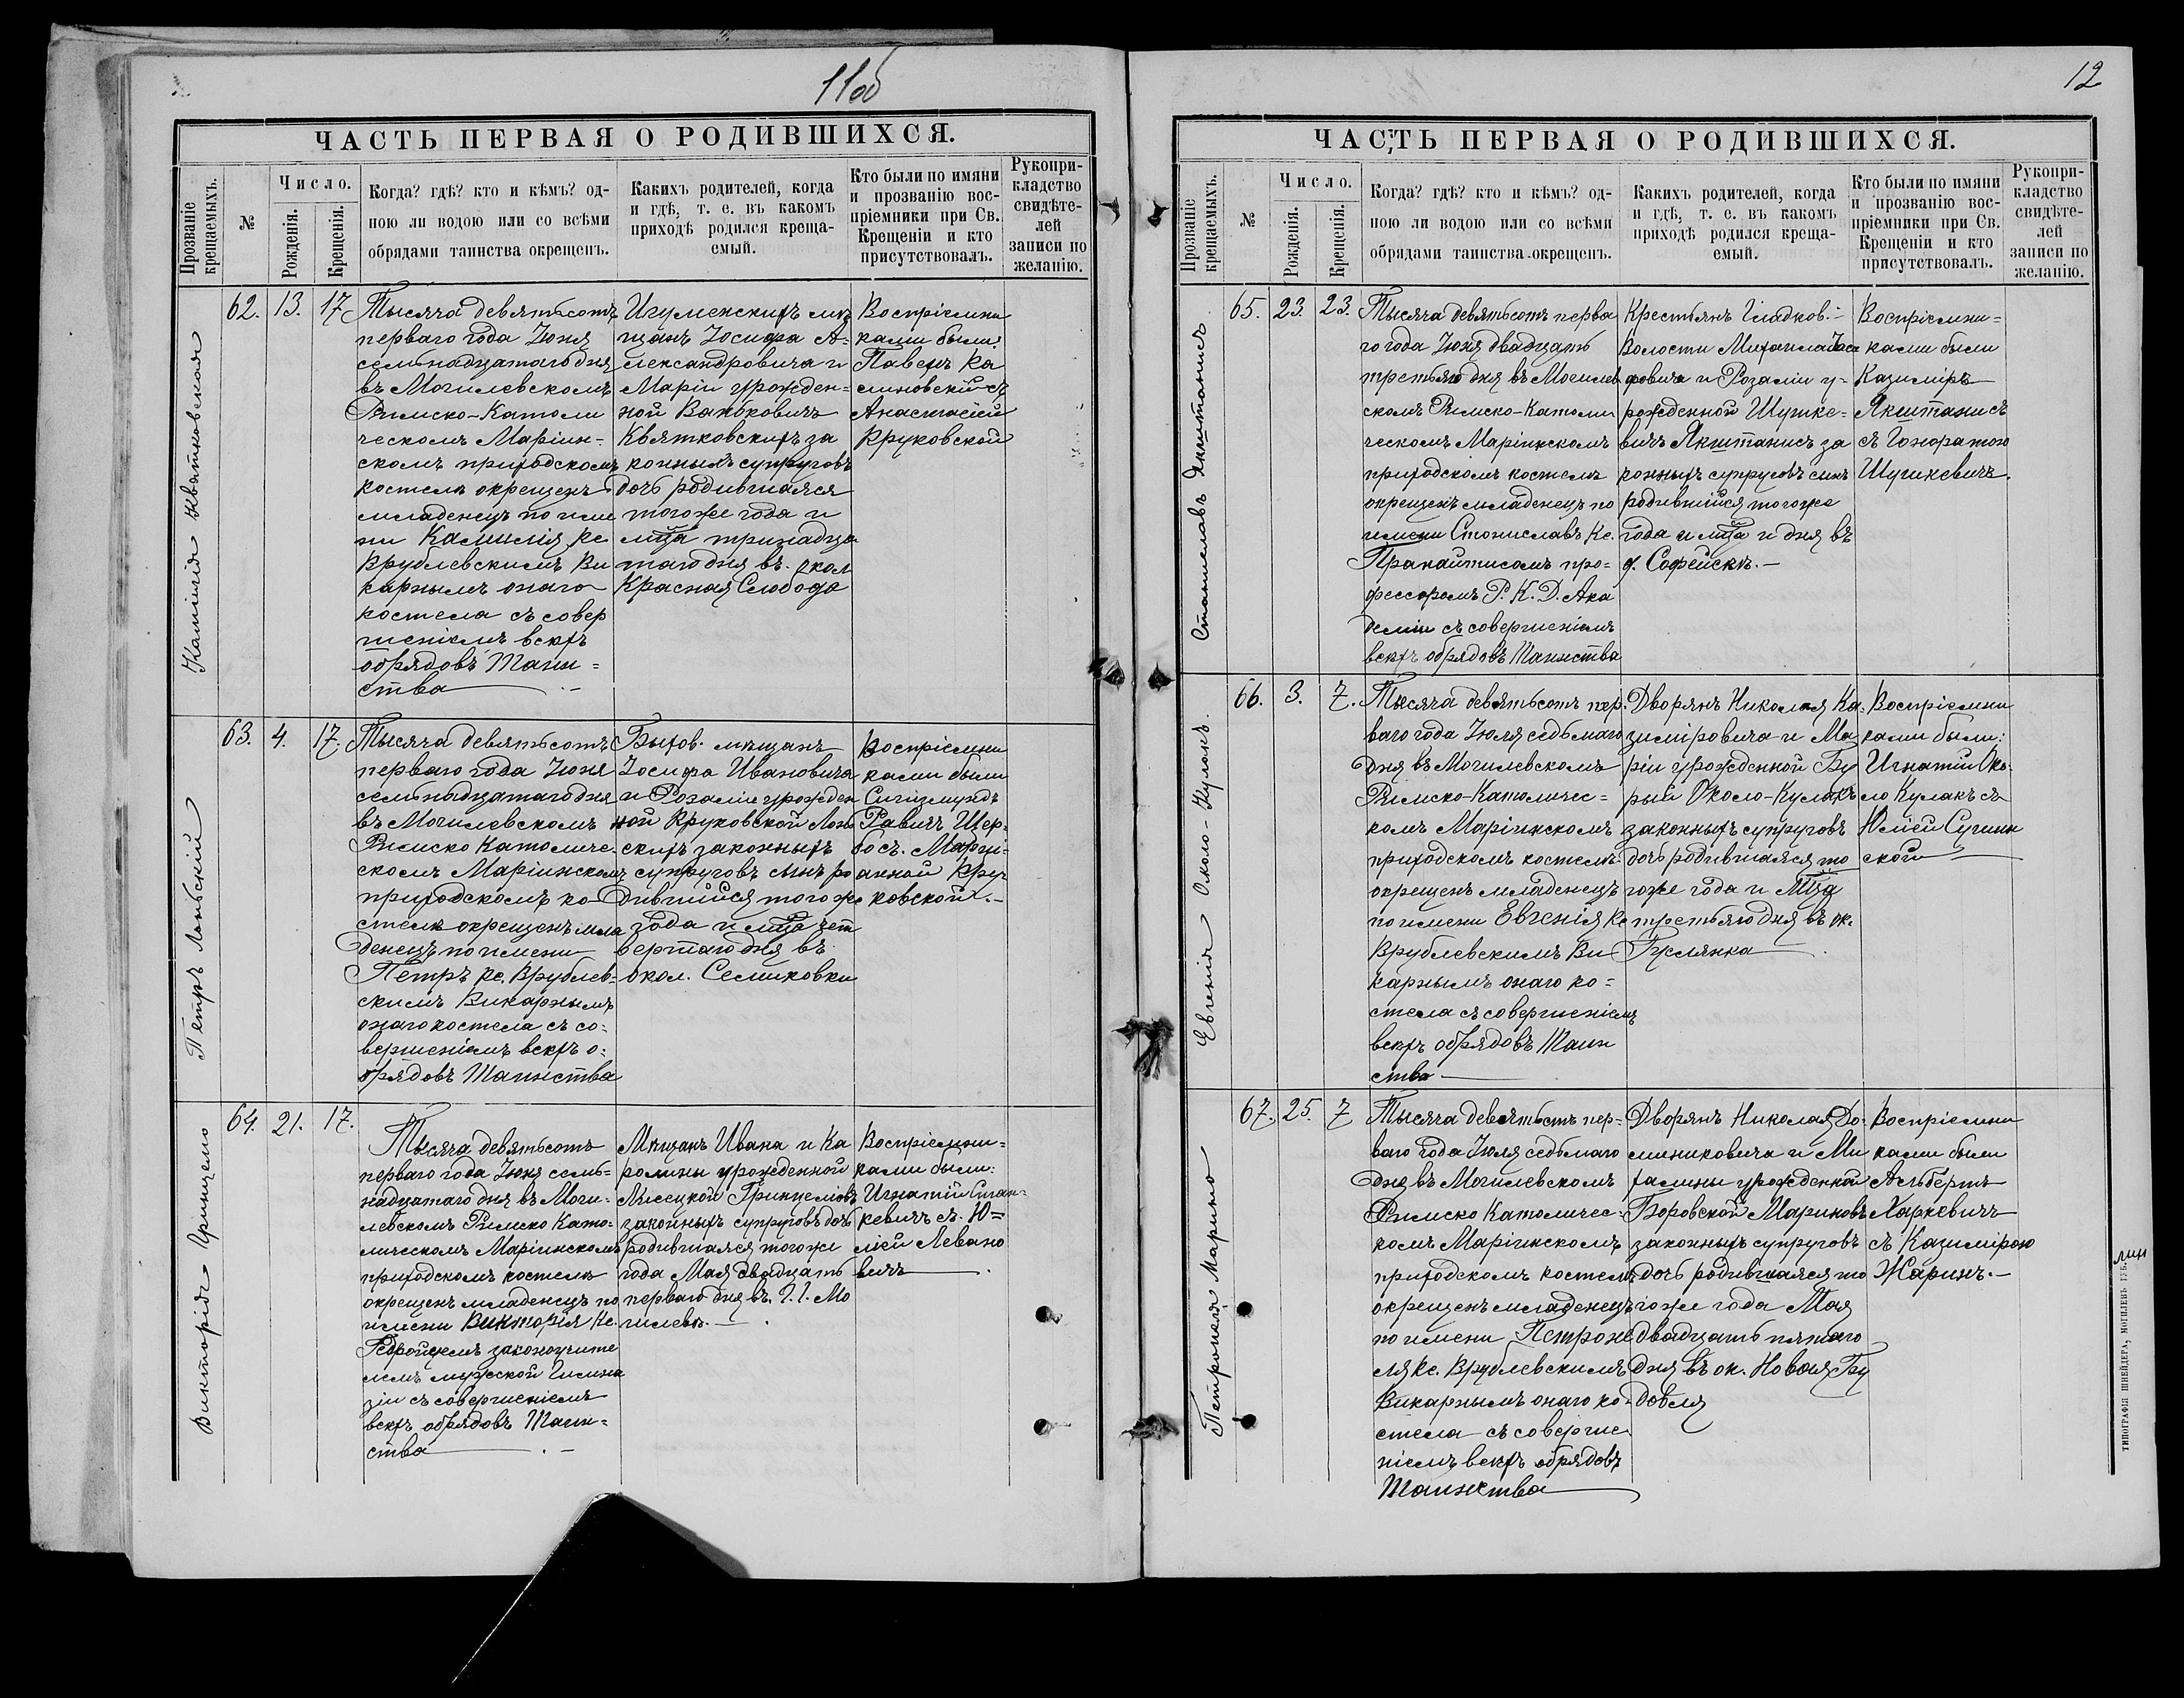 11об
ЧАСТЬ ПЕРВАЯ О РОДИВШИХСЯ.
Прозваніе крещаемыхъ.
№
Число.
Рожденія.
Крещенія.
Когда? гдѣ? кто и кѣмъ? од-
ною ли водою или со всѣми
обрядами таинства окрещенъ.
Какихъ родителей, когда
и гдѣ, т. е. въ какомъ
приходѣ родился креща-
емый.
Кто были по имяни
и прозванію вос-
пріемники при Св.
Крещеніи и кто
присутствовалъ.
Рукопри-
кладство
свидѣте-
лей
записи по
желанію.
Камиллія Квятковская
62. 13. 17
Тысяча девятьсотъ
перваго года Іюня
семьнадцатаго дня
въ Могилевскомъ
Римско-Католи
ческомъ Маріин-
скомъ приходскомъ
костелѣ окрещенъ
младенецъ по име
ни Камиллія, Кс.
Врублевскимъ Ви
карнымъ онаго
костела съ совер
шеніемъ всѣхъ
обрядовъ Таин=
ства
Игуменскихъ мѣ
щанъ Іосифа А-
лександровича и
Маріи урожден-
ной Ваньковичъ
Квятковскихъ за
конныхъ супруговъ
дочь родившаяся
того же года и
мца тринадца
таго дня въ. окол
Красная Слобода
Воспріемни
ками были:
Павелъ Ка
линовскій съ
Анастасіей
Круковской
Петръ Лоньскій
63. 4. 17.
Тысяча девятьсотъ
перваго года Іюня
семьнадцатаго дня
въ Могилевскомъ
Римско Католиче
скомъ Маріинскомъ
приходскомъ ко-
стелѣ окрещенъ мла
денецъ по имени
Петръ Кс. Врублев-
скимъ Викарнымъ
онаго костела съ со:
вершеніемъ всѣхъ о:
брядовъ Таинства
Быхов. мѣщанъ
Іосифа Ивановича
и Розаліи урожден
ной Круковской Лонь
скихъ законныхъ
супруговъ сынъ ро
дившійся того же
года и мца чет
вертаго дня въ
окол. Селиковки
Воспріемни
ками были
Сигизмундъ
Равичъ Щер-
бо съ. Марці-
анной Кру
ковской.-
Викторія Гринцело
64. 21. 17.
Тысяча девятьсотъ
перваго года Іюня семь=
надцатаго дня въ Моги-
левскомъ Римско Като-
лическомъ Маріинскомъ
приходскомъ костелѣ
окрещенъ младенецъ по
имени Викторія Кс.
законоучите
лемъ мужской Гимна
зіи съ совершеніемъ
всѣхъ обрядовъ Таин=
ства
Мѣщанъ Ивана и Ка
ролины урожденной
Лисецкой Гринцеловъ
законныхъ супруговъ дочь
родившаяся того же
года Мая двадцать
перваго дня въ. Г. Г. Мо
гилевѣ.
Воспріемни=
ками были:
Игнатій Стан-
кевичъ съ. Ю=
ліей Левано
вичъ
12
ЧАСТЬ ПЕРВАЯ О РОДИВШИХСЯ.
Прозваніе крещаемыхъ.
№
Число.
Рожденія.
Крещенія.
Когда? гдѣ? кто и кѣмъ? од-
ною ли водою или со всѣми
обрядами таинства окрещенъ.
Какихъ родителей, когда
и гдѣ, т. е. въ какомъ
приходѣ родился креща-
емый.
Кто были по имяни
и прозванію вос-
пріемники при Св.
Крещеніи и кто
присутствовалъ.
Рукопри-
кладство
свидѣте-
лей
записи по
желанію.
Станиславъ Якштанисъ
65. 23. 23.
Тысяча девятьсотъ перва
го года Іюня двадцать
третьяго дня въ Могилев
скомъ Римско-Католи
ческомъ Маріинскомъ
приходскомъ костелѣ
окрещенъ младенецъ по
имени Станиславъ Кс.
Пранайтисомъ про=
фессоромъ Р. К. Д. Ака
деміи съ совершеніемъ
всѣхъ обрядовъ Таинства
Крестьянъ Гладков.
волости Михаила Іоси
фовича и Розаліи у-
рожденной Шушке-
вичъ Якштанисъ за
конныхъ супруговъ сынъ
родившійся того же
года и мца и дня въ
ф. Софейскѣ.-
Воспріемни=
ками были
Казиміръ
Якштанисъ
съ Гоноратою
Шушкевичъ.
Евгенія Около-Кулакъ.
66. 3. 7.
Тысяча девятьсотъ пер.
ваго года Іюля седьмаго
дня въ Могилевскомъ
Римско-Католичес=
комъ Маріинскомъ
приходскомъ костелѣ
окрещенъ младенецъ
по имени Евгенія Кс
Врублевскимъ Ви
карнымъ онаго ко=
стела съ совершеніемъ
всѣхъ обрядовъ Таин
ства
Дворянъ Николая Ка-
зиміровича и Ма
ріи урожденной Бу
рый Около-Кулакъ
законныхъ супруговъ
дочь родившаяся то
гоже года и Мца
третьяго дня въ ок.
Гуслянка
Воспріемни
ками были:
Игнатій Око-
ло Кулакъ съ
Юліей Сушин
ской
Петронеля Марино
67. 25. 7
Тысяча девятьсотъ пер=
ваго года Іюля седьмаго
дня въ Могилевскомъ
Римско Католичес-
комъ Маріинскомъ
приходскомъ костелѣ
окрещенъ младенецъ
по имени Петроне
ля Кс. Врублевскимъ
Викарнымъ онаго ко-
стела съ соверше
ніемъ всѣхъ обрядовъ
Таинства
Дворянъ Николая До-
миниковича и Ми
халины урожденной
Боровской Мариновъ
законныхъ супруговъ
дочь родившаяся то
гоже года Мая
двадцать пятаго
дня въ ок. Новая Бу
довля
Воспріемни
ками были
Альбертъ
Харкевичъ
съ Казимірою
Жаринъ.-
ТИПОГРАФІЯ ШНЕЙДЕРА, МОГИЛЕВЪ ГУБ.